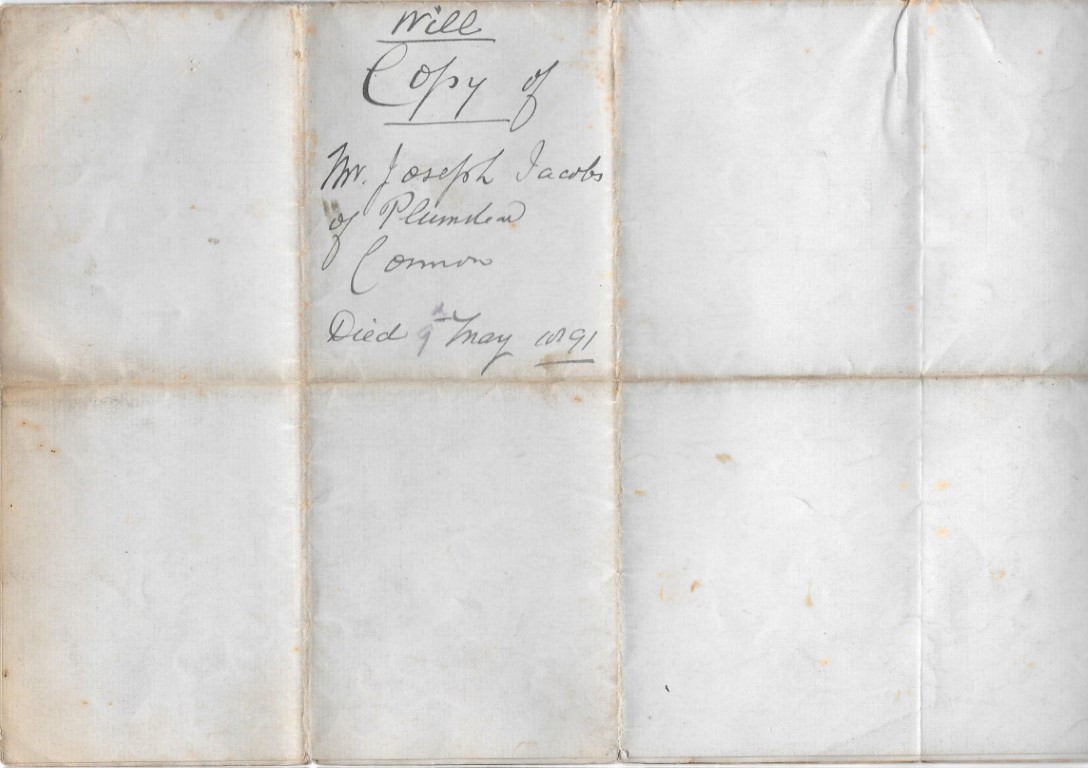 Will
Copy of
Mr. Joseph Jacobs
of Plumdon
Common
Died 9th May 1891